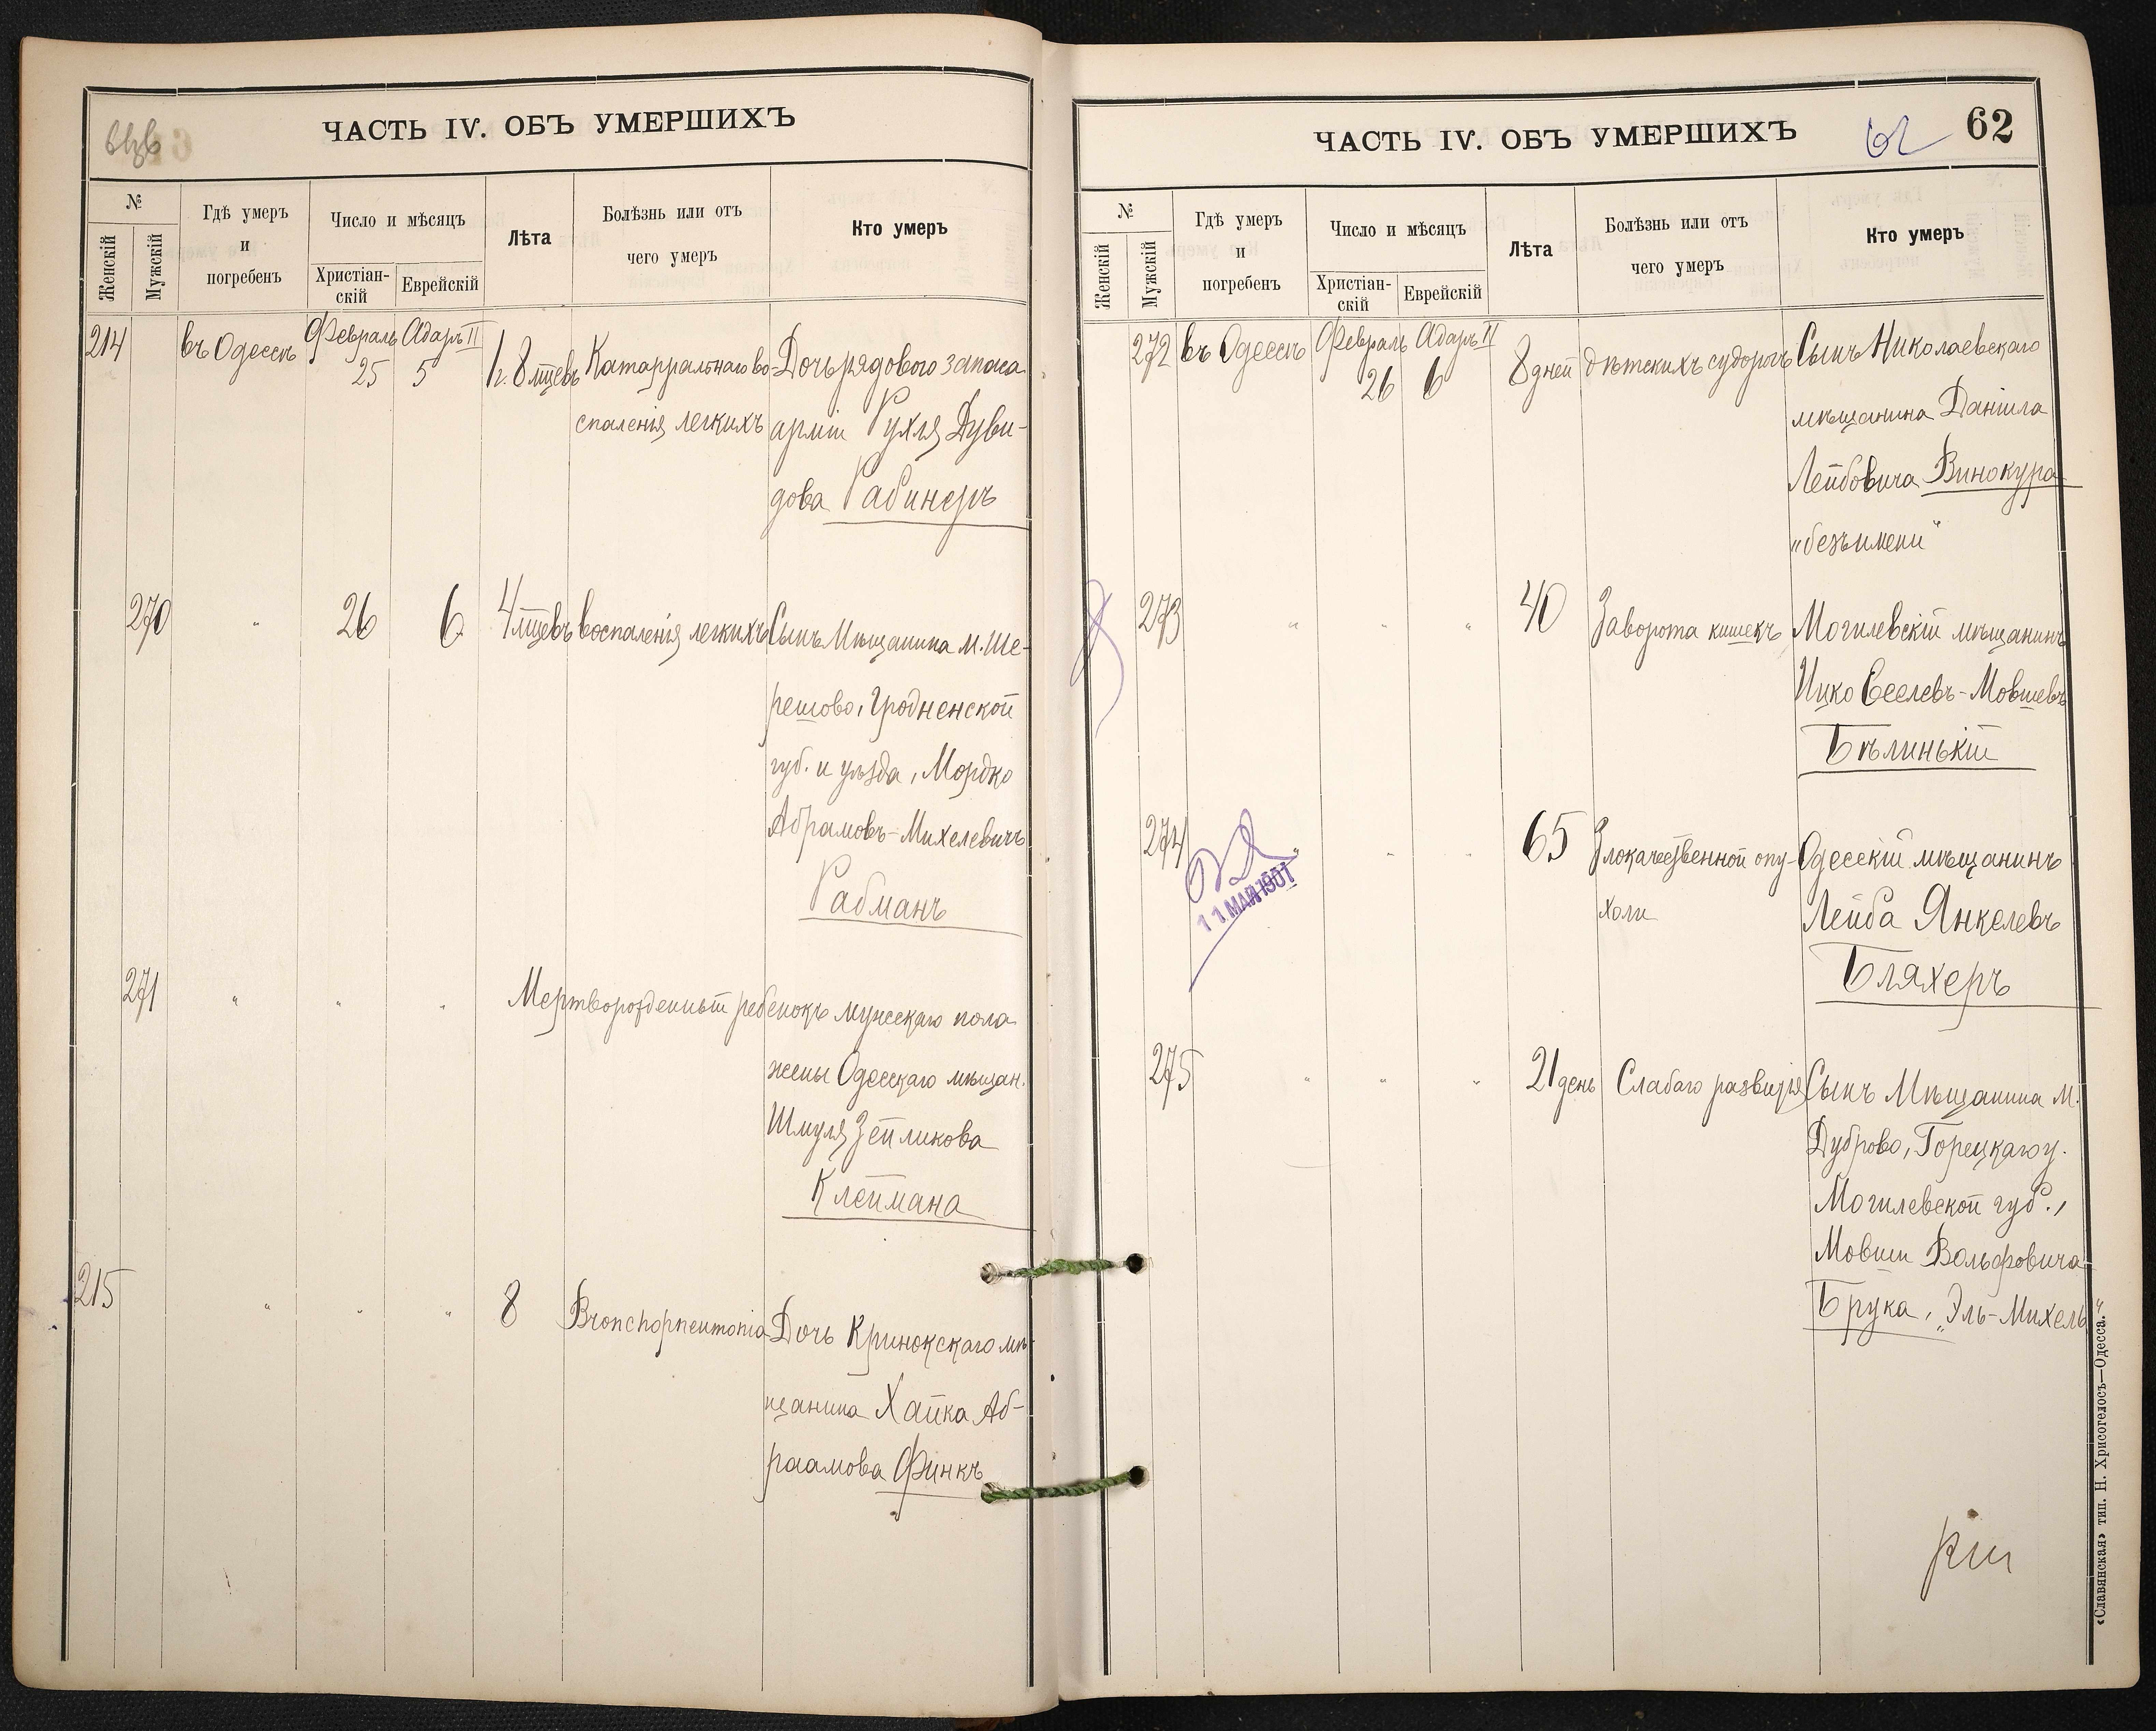 ЧАСТЬ IV. ОБЪ УМЕРШИХЪ
№
Женскій
Мужскій
Гдѣ умеръ
и
погребенъ
Число и мѣсяцъ
Христіан-
скій
Еврейскій
Лѣта
Болѣзнь или отъ
чего умеръ
Кто умеръ
214 въ Одессѣ Февраль 25 Адаръ II 5 1 г. 8 мцевъ Катарральнаго во- Дочь рядового запаса
спаленія легкихъ арміи Рухля Дуви-
дова Рабинеръ
270 " 26 6 4 мцевъ воспаленія легкихъ Сынъ Мѣщанина м. Ше-
решово, Гродненской
губ. и уѣзда, Мордко
Абрамовъ-Михелевичъ
Рабманъ
271 " " " Мертворожденный ребенокъ мужскаго пола
жены Одесскаго мѣщан.
Шмуля Зейликова
Клеймана
215 " " " 8 Bronchopneumonia Дочь Кринокскаго мѣ-
щанина Хайка Аб-
раамова Финкъ
ЧАСТЬ IV. ОБЪ УМЕРШИХЪ
62 62
№
Женскій
Мужскій
Гдѣ умеръ
и
погребенъ
Число и мѣсяцъ
Христіан-
скій
Еврейскій
Лѣта
Болѣзнь или отъ
чего умеръ
Кто умеръ
272 въ Одессѣ Февраль 26 Адаръ II 6 8 дней дѣтскихъ судорогъ Сынъ Николаевскаго
мѣщанина Даніила
Лейбовича Винокура
"безъимени"
273 " " " 40 Заворота кишекъ Могилевскій мѣщанинъ
Ицко Еселевъ-Мовшевъ
Бѣлинькій
274 " " " 65 Злокачественной опу- Одесскій мѣщанинъ
холи Лейба Янкелевъ
Бляхеръ
11 МАЯ 1901
275 " " " 21 день Слабаго развитія Сынъ Мѣщанина м.
Дуброво, Горецкаго у.
Могилевской губ.,
Мовши Вольфовича
Брука, "Эль-Михель"
«Славянская» тип. Н. Хрисогелосъ—Одесса.